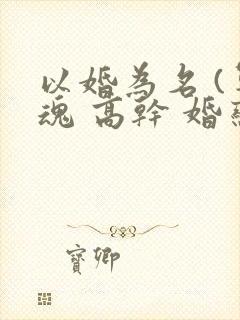 以婚為名(
魂 高幹 婚
寶卿